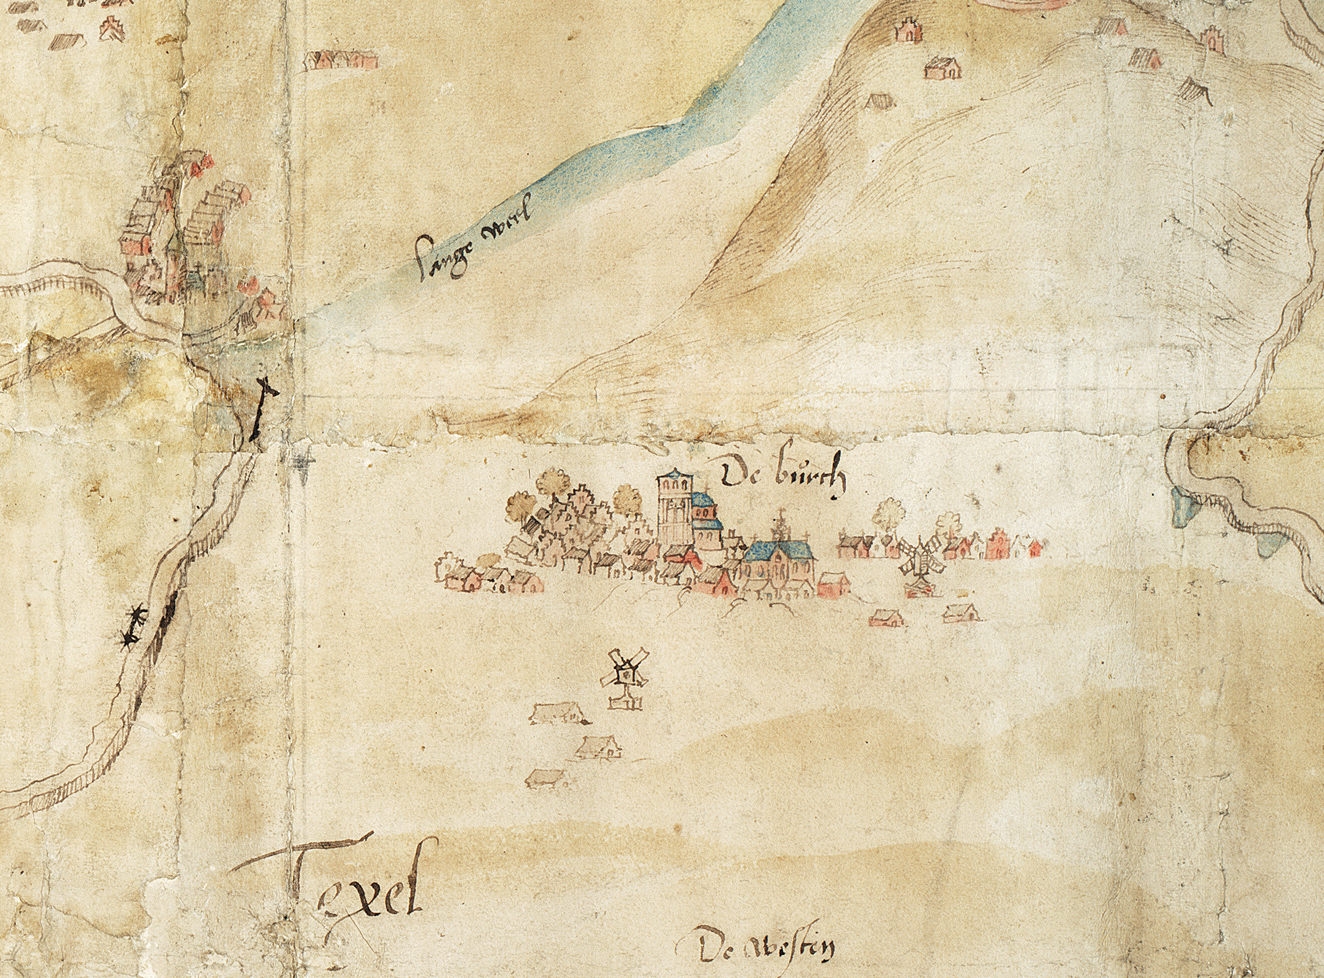 Lange weel
De bůrch
Texel
De westen